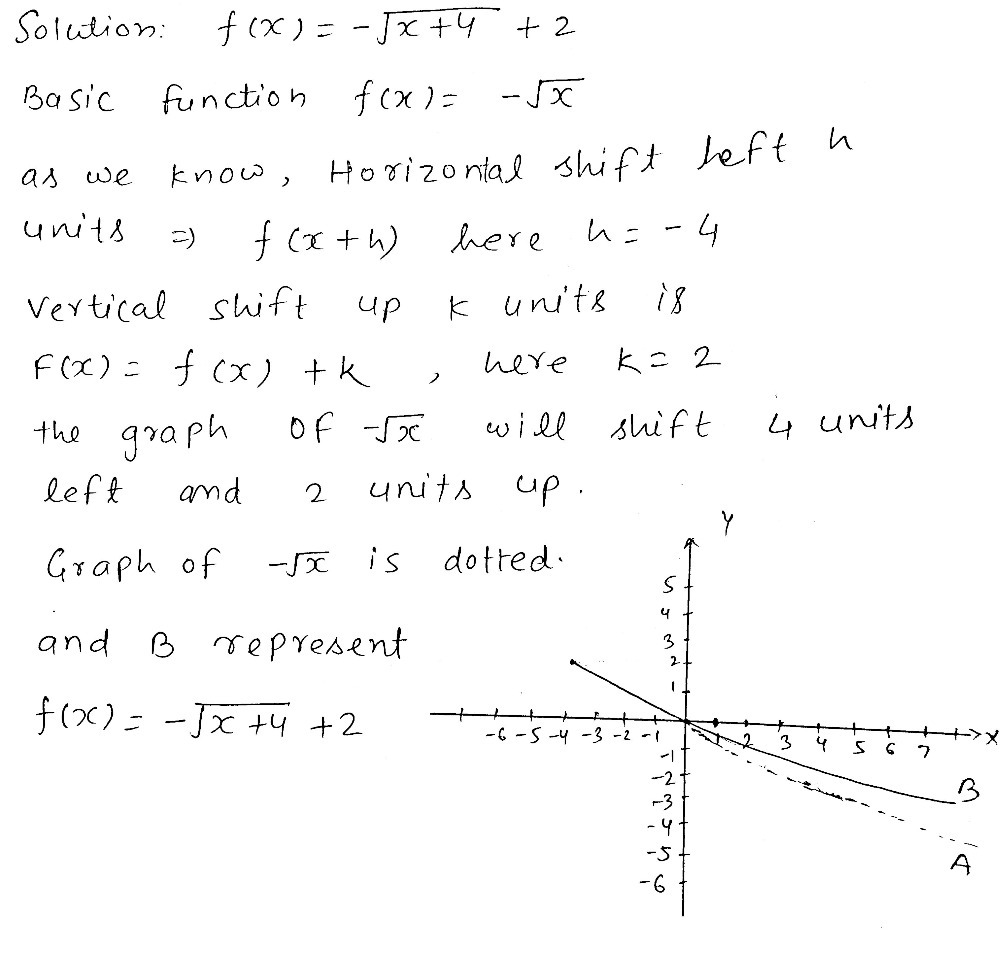 Solution: f(x) = -√(x+4) + 2
Basic function f(x) = -√x
as we know, Horizontal shift left h
units ⇒ f(x+h) here h = -4
vertical shift up k units is
F(x) = f(x) + k , here k = 2
the graph of -√x will shift 4 units
left and 2 units up.
Graph of -√x is dotted.
and B represent
f(x) = -√(x+4) + 2
Y
5
4
3
2
1
-6 -5 -4 -3 -2 -1 1 2 3 4 5 6 7 X
-1
-2
-3
-4
-5
-6
B
A